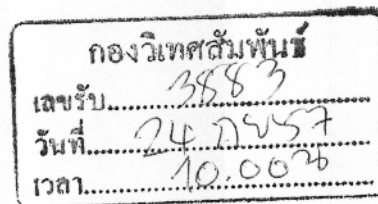 กองวิเทศสัมพันธ์
เลขรับ.....3883
วันที่.....24 กย57
เวลา.....10.00น